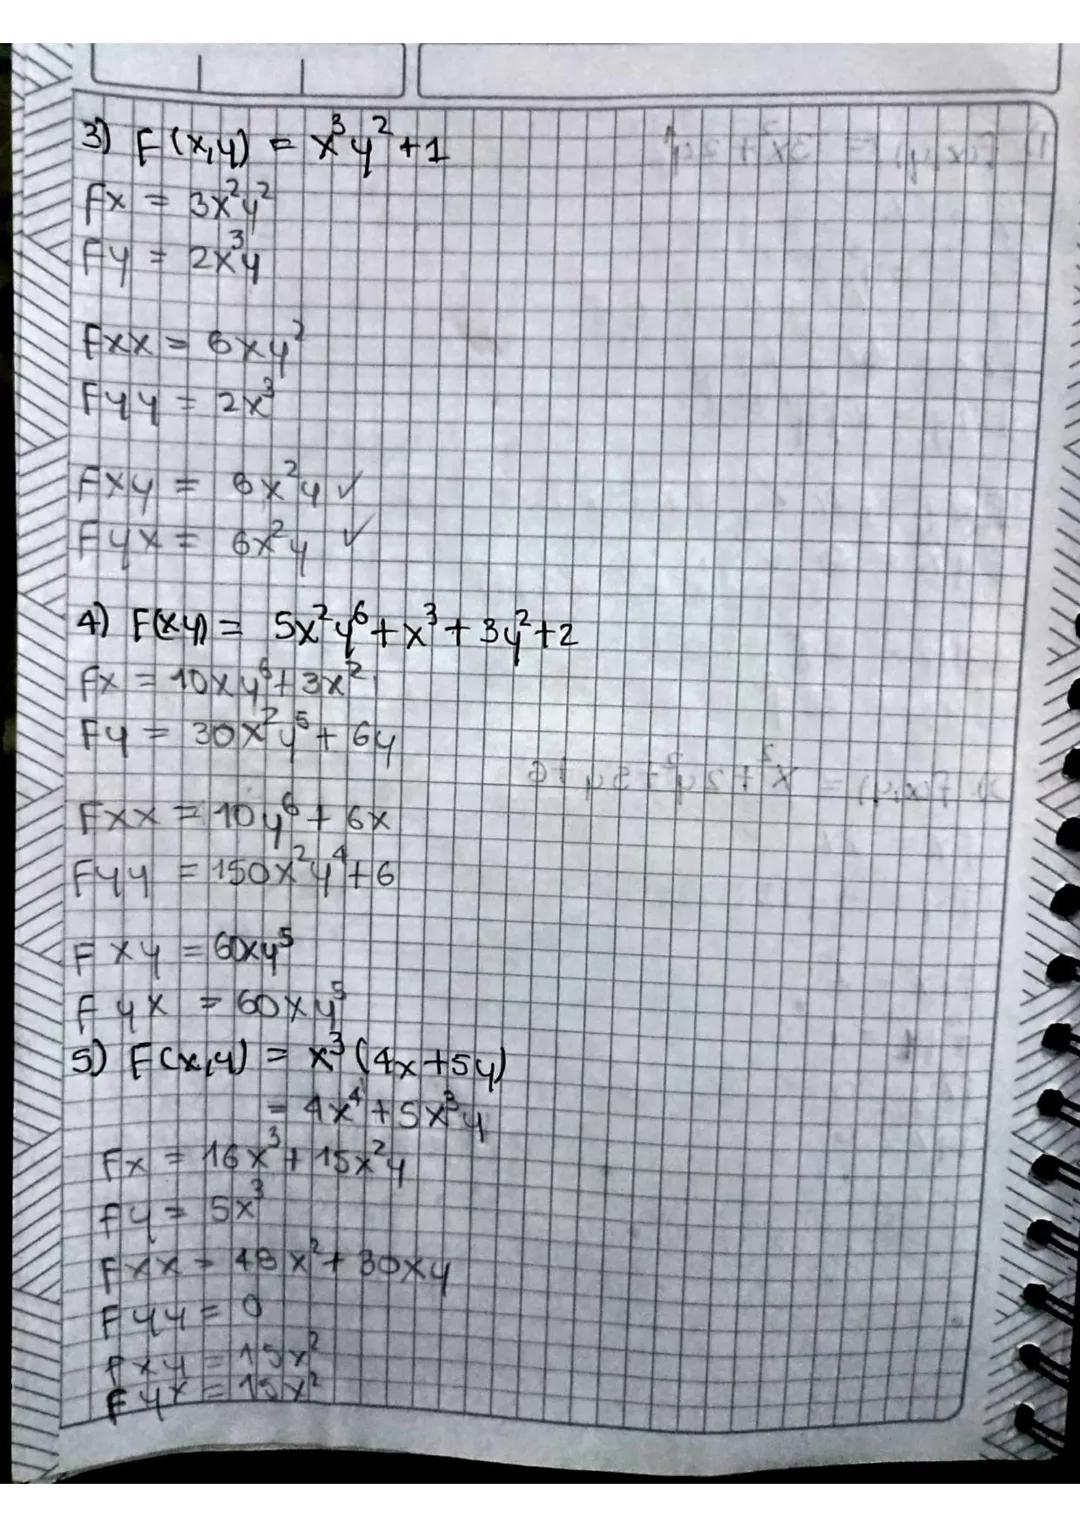 3) F(x,y) = x³y²+1
Fx = 3x²y²
Fy = 2x³y
Fxx = 6xy²
Fyy = 2x³
Fxy = 6x²y ✓
Fyx = 6x²y ✓
4) F(xy) = 5x²y⁶+x³+3y²+2
Fx = 10xy⁶+3x²
Fy = 30x²y⁵+6y
Fxx = 10y⁶+6x
Fyy = 150x²y⁴+6
Fxy = 60xy⁵
Fyx = 60xy⁵
5) F(x,y) = x³(4x+5y)
= 4x⁴+5x³y
Fx = 16x³+15x²y
Fy = 5x³
Fxx = 48x²+30xy
Fyy = 0
Fxy = 15x²
Fyx = 15x²